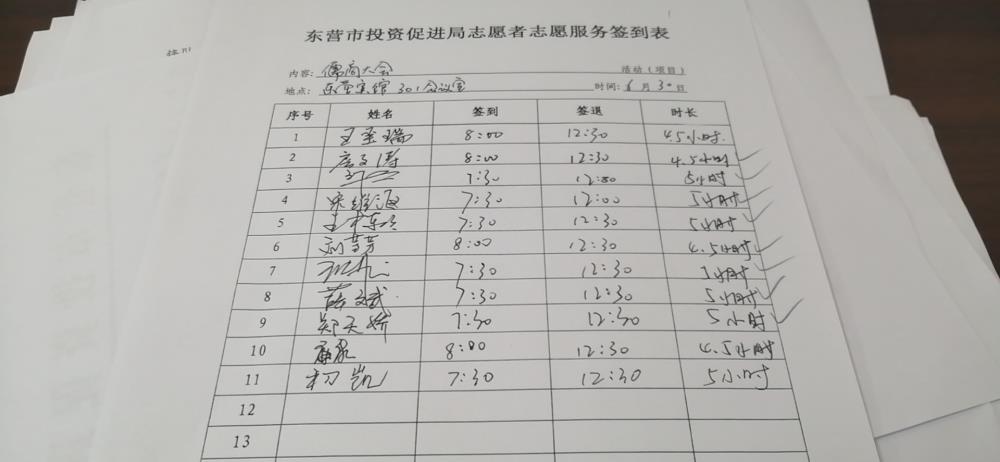 东营市投资促进局志愿者志愿服务签到表
内容：儒商大会 活动（项目）
地点：东营宾馆301会议室 时间：6月30日
序号 姓名 签到 签退 时长
1 8:00 12:30 4.5小时
2 8:00 12:30 4.5小时
3 7:30 12:00 5小时
4 7:30 12:00 5小时
5 7:30 12:30 5小时
6 刘芳芳 8:00 12:30 4.5小时
7 7:30 12:30 5小时
8 薛文斌 7:30 12:30 5小时
9 郑天娇 7:30 12:30 5小时
10 8:00 12:30 4.5小时
11 杨凯 7:30 12:30 5小时
12
13